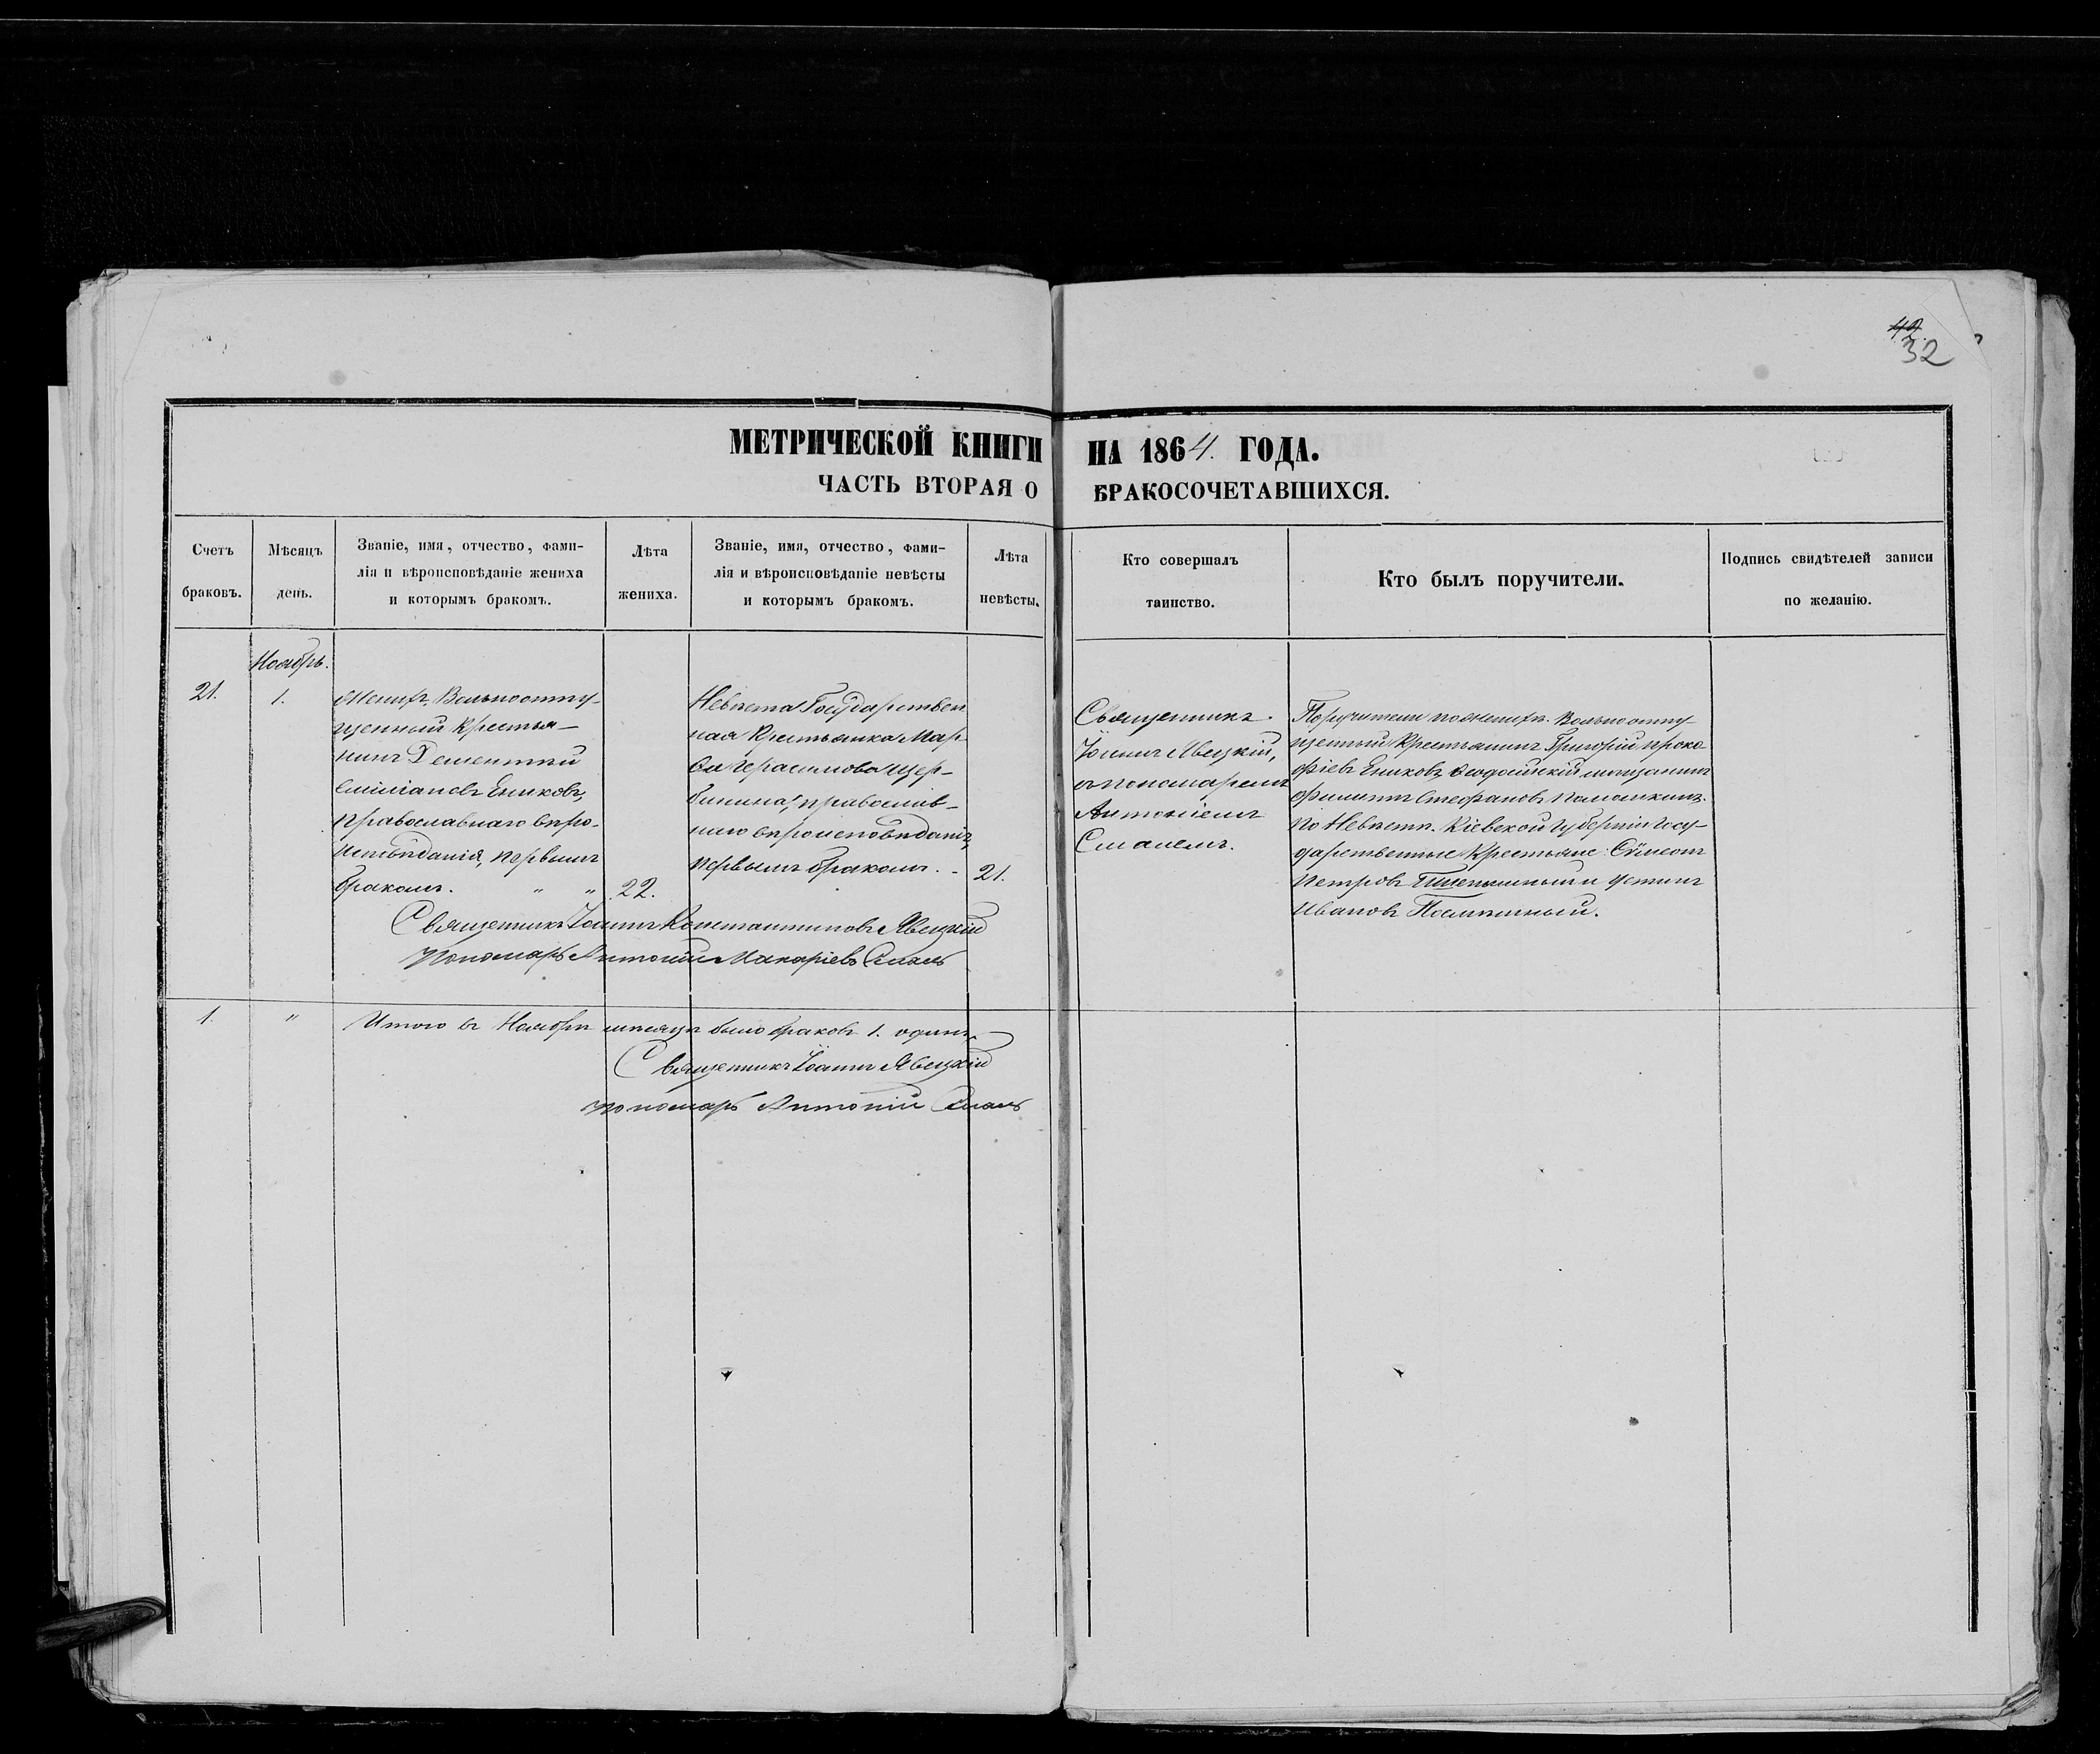 42
32
МЕТРИЧЕСКОЙ КНИГИ НА 1864. ГОДА.
ЧАСТЬ ВТОРАЯ О БРАКОСОЧЕТАВШИХСЯ.
Счетъ браковъ.
Мѣсяцъ день.
Званіе, имя, отчество, фами-
лія и вѣроисповѣданіе жениха
и которымъ бракомъ.
Лѣта жениха.
Званіе, имя, отчество, фами-
лія и вѣроисповѣданіе невѣсты
и которымъ бракомъ.
Лѣта невѣсты.
Кто совершалъ таинство.
Кто былъ поручители.
Подпись свидѣтелей записи
по желанію.
Ноябрь.
21.
1.
Женихъ, Вольноотпу-
щенный Крестья-
нинъ Дементий
Емiлiановъ Ениковъ,
православнаго вѣро-
исповѣданія, первымъ
бракомъ. " "
22.
Невѣста Государствен
ная Крестьянка Мар
ѳа Герасимова Щер-
бинина, православ-
наго вѣроисповѣданія,
первымъ бракомъ. -
21.
Священникъ
Іоаннъ Явецкій,
съ пономаремъ
Антоніемъ
Поручители по женихѣ. Вольноотпу-
щенный Крестьянинъ Григорій Проко
фіевъ Ениковъ, Ѳеодосійскій мещанинъ
Филиппъ Стефановъ
по Невѣстѣ. Кіевской Губерніи Госу-
дарственные Крестьяне: Сѵмеонъ
Петровъ Пшеничный и Устинъ
Ивановъ
Священникъ Іоаннъ Константиновъ Явецкій
Пономарь Антоній Макаріевъ
1.
"
Итого въ Ноябрѣ мѣсяцѣ было браковъ 1. одинъ
Священникъ Іоаннъ Явецкій
пономарь Антоній